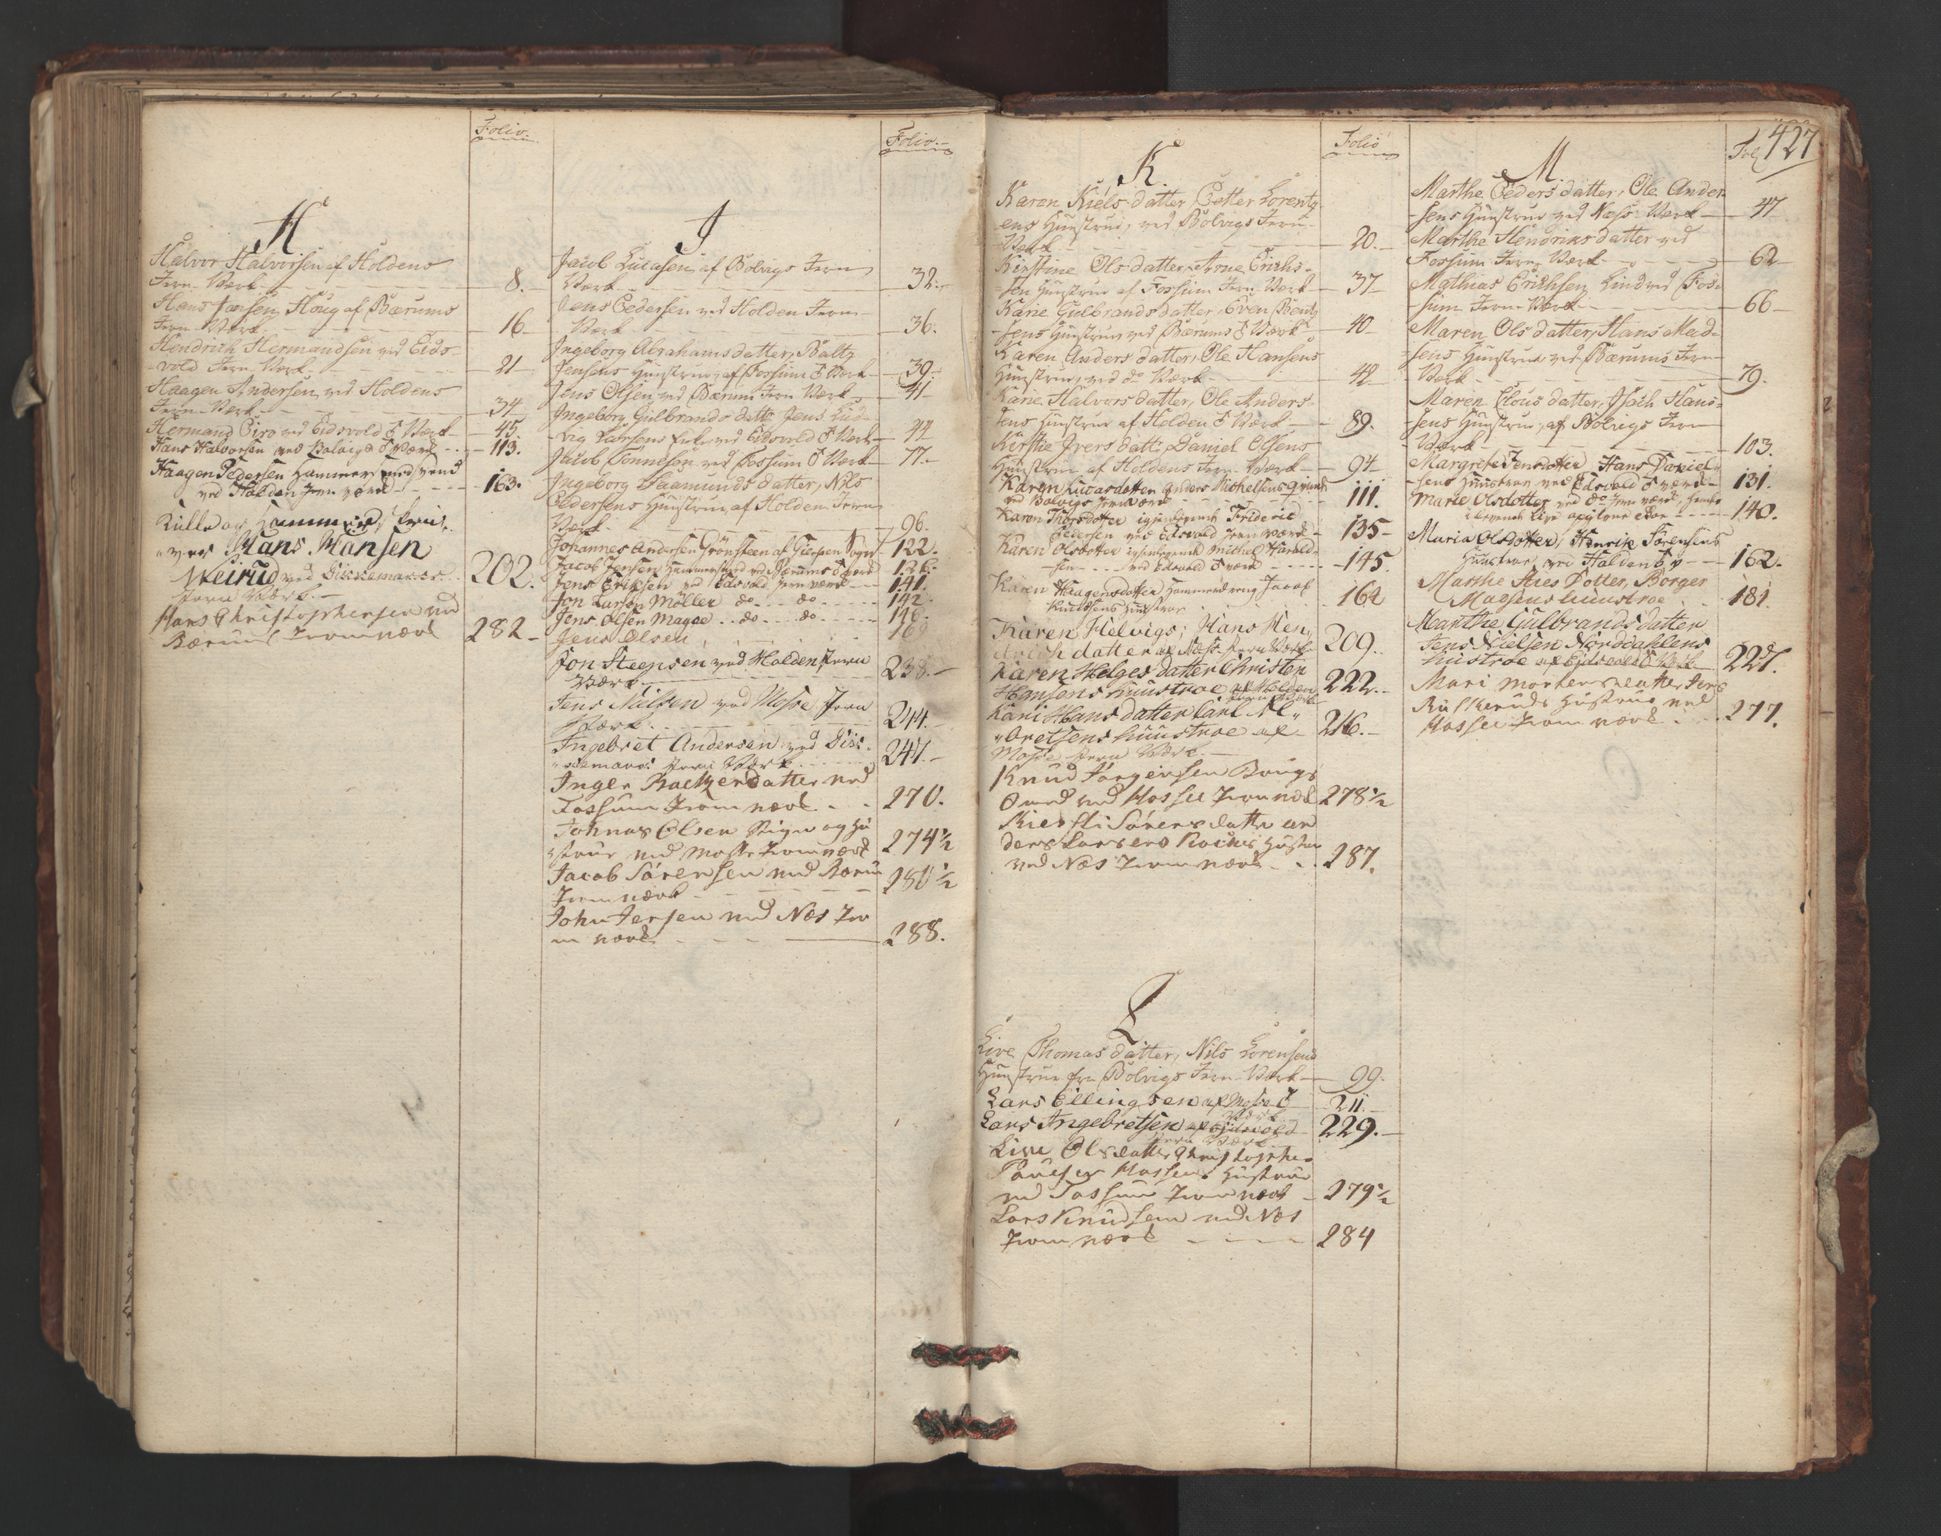 Folio.
H
Halvor Halvorsen af Holdens
Jern-Værk 8.
Hans Houg af Bærums
Jern-Værk 16.
Hendrich Hermandsen ved Eids-
vold Jern-Værk 21
Haagen Andersen ved Holdens
Jern-Værk 34
Hermand ved Eidsvold J Værk 45.
Hans Halvorsen ved Bolvigs J Værk 113.
Haagen Pedersen Hammersmed svend
ved Holden Jern værk 163.
Hans Hansen
Weirud ved Dikkemarks 202.
Jern Værk.
Hans Christophersen ved
Bærums Jernværk 282
Folio.
I
Jacob Lucasen af Bolvigs Jern
Værk 32.
Jens Pedersen ved Holden Jern
Værk 36.
Ingeborg Abrahams datter, Baltz
Jensens Hunstrue, af Fossum J Værk 39.
Jens Olsen ved Bærum Jern Værk 41
Ingeborg Gulbrands datt: Jens Lud-
vig Larsens Enke ved Eidsvold J Værk 44
Jacob Tonnesen ved Fossum J Værk 77.
Ingeborg Saamunds datter, Nils
Pedersens Hunstrue af Holden Jern
Værk 96.
Johannes Andersen Grønsteen af 122.
Jacob Jensen Hammersmed ved Bærums J værk 136.
Jens Eriksen ved Edsvold Jern værk 141.
Jon Larsen Møller do do 142.
Jens Olsen Mager do do 146.
Jens Olsen 169
Jon Steensen ved Holden Jern
Værk 238.
Jens Nilsen ved Mosse Jern
Værk 244.
Ingebret Andersen ved Dikk-
emarks Jern Værk 247.
Inger datter ved
Fossum Jernværk 270.
Johnas Olsen og Hu
strue ved Mosse Jernværk 274½
Jacob Sørensen ved Bærum
Jernværk 280½
John Jensen ved Næs Jer
n værk 288.
Folio
K.
Karen Kiels datter, Petter Lorentz
ens Hunstrue, ved Bolvigs Jern-
Værk 20.
Kirstine Ols datter, Arne Erichs-
sen Hunstrue af Fossum Jern-Værk 37
Karie Gulbrands datter, Even Bentz
sens Hunstrue ved Bærums J Værk 40
Karen Anders datter, Ole Hansens
Hunstrue, ved do Værk 42
Karie Halvors datter, Ole Anders-
sens Hunstrue af Holden J Værk 89.
Kirstie Ivers datt: Daniel Olsens
Hunstrue af Holdens Jern-Værk 94
Karen Lucasdatter Anders Michelsens
ved Bolvigs Jernværk 111.
Karen Thorsdatter Frideric
Pedersen ved Edsvold Jern værk 135
Karen Olsdatter Michel Harald-
sen ved Edsvold J værk 145.
Karen Haagensdatter Hammersmed Jacob
Knudsens Hunstrue 164
Karen Helvigs, Hans Hen-
drich datter af Næss Jern Værk 209.
Karen Helges datter Christen
Hansens hunstroe af Holden 222.
Kari Hans datter Carl Al-
bretsens hunstroe af 216.
Mosse Jern Værk
Knud Jørgensen
ved Mosse Jernværk 278½
Kiersti Sørens datter An
ders Larsens Hustru
ved Næs Jernværk 287.
L
Live Thomas datter, Nils Sørensens
Hunstrue fra Bolvigs Jern-Værk 99.
Lars Ellingsen af Mosse J 211.
Værk
Lars Ingebretsen af Eidsvold 229.
Jern Værk
Live Ols datter Christophe
Hansens Hustrue
ved Fossum Jernværk 279½
Lars Knudsen ved Næs
Jernværk 284
427
Fol
M
Marthe Peders datter, Ole Ander-
sens Hunstrue ved Næss-Værk 47
Marthe Hendrics datter ved
Fossum Jern-Værk 62
Mathias Erichsen Lind ved Fos-
sum Jern-Værk 66
Maren Ols datter, Hans Mad-
sens Hunstrue ved Bærums Jern
Værk 79.
Maren Clous datter, Isach Hans-
sens Hunstrue, af Bolvigs Jern
Værk 103.
Margrete Jensdatter Hans Daniel-
sens Hunstrue ved Edsvold J værk 131.
Marie Olsdatter ved do Jern værk, 140.
Maria Olsdatter, Henrik Sørensens
Hunstrue, ved Holden J v 162.
Marthe Ares Dotter, Borger
hunstroe 181.
Marthe Gulbrands datter
Jens Nielsen Nordvahlens
hustroe af Eidsvold J Værk 227.
Mari Mortens datter Jens
Hustrue ved
Mosse Jernværk 277.